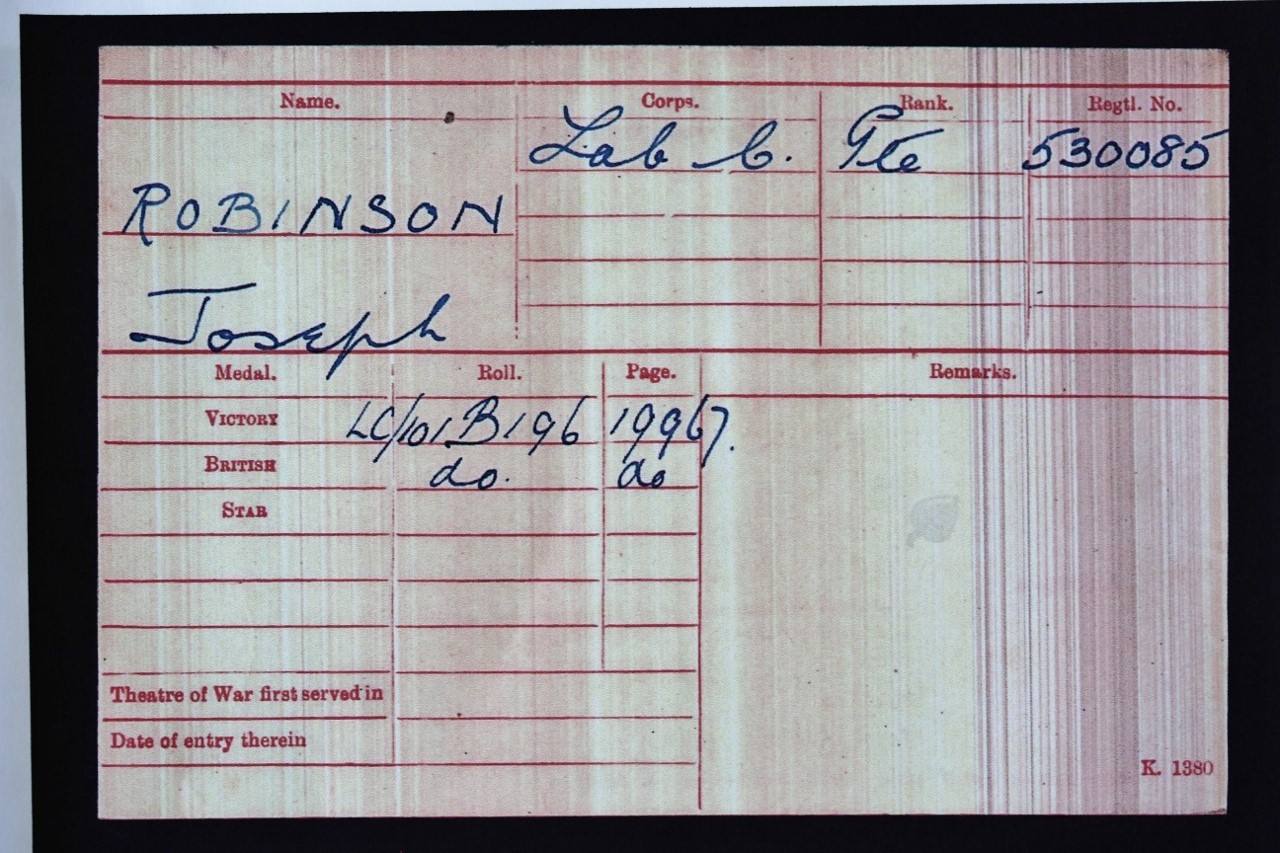 Name. Corps. Rank. Regtl. No.
Lab C. Pte 530085
ROBINSON
Joseph
Medal. Roll. Page. Remarks.
VICTORY LC/101B196 19967.
BRITISH do. do
STAR
Theatre of War first served in
Date of entry therein
K. 1380